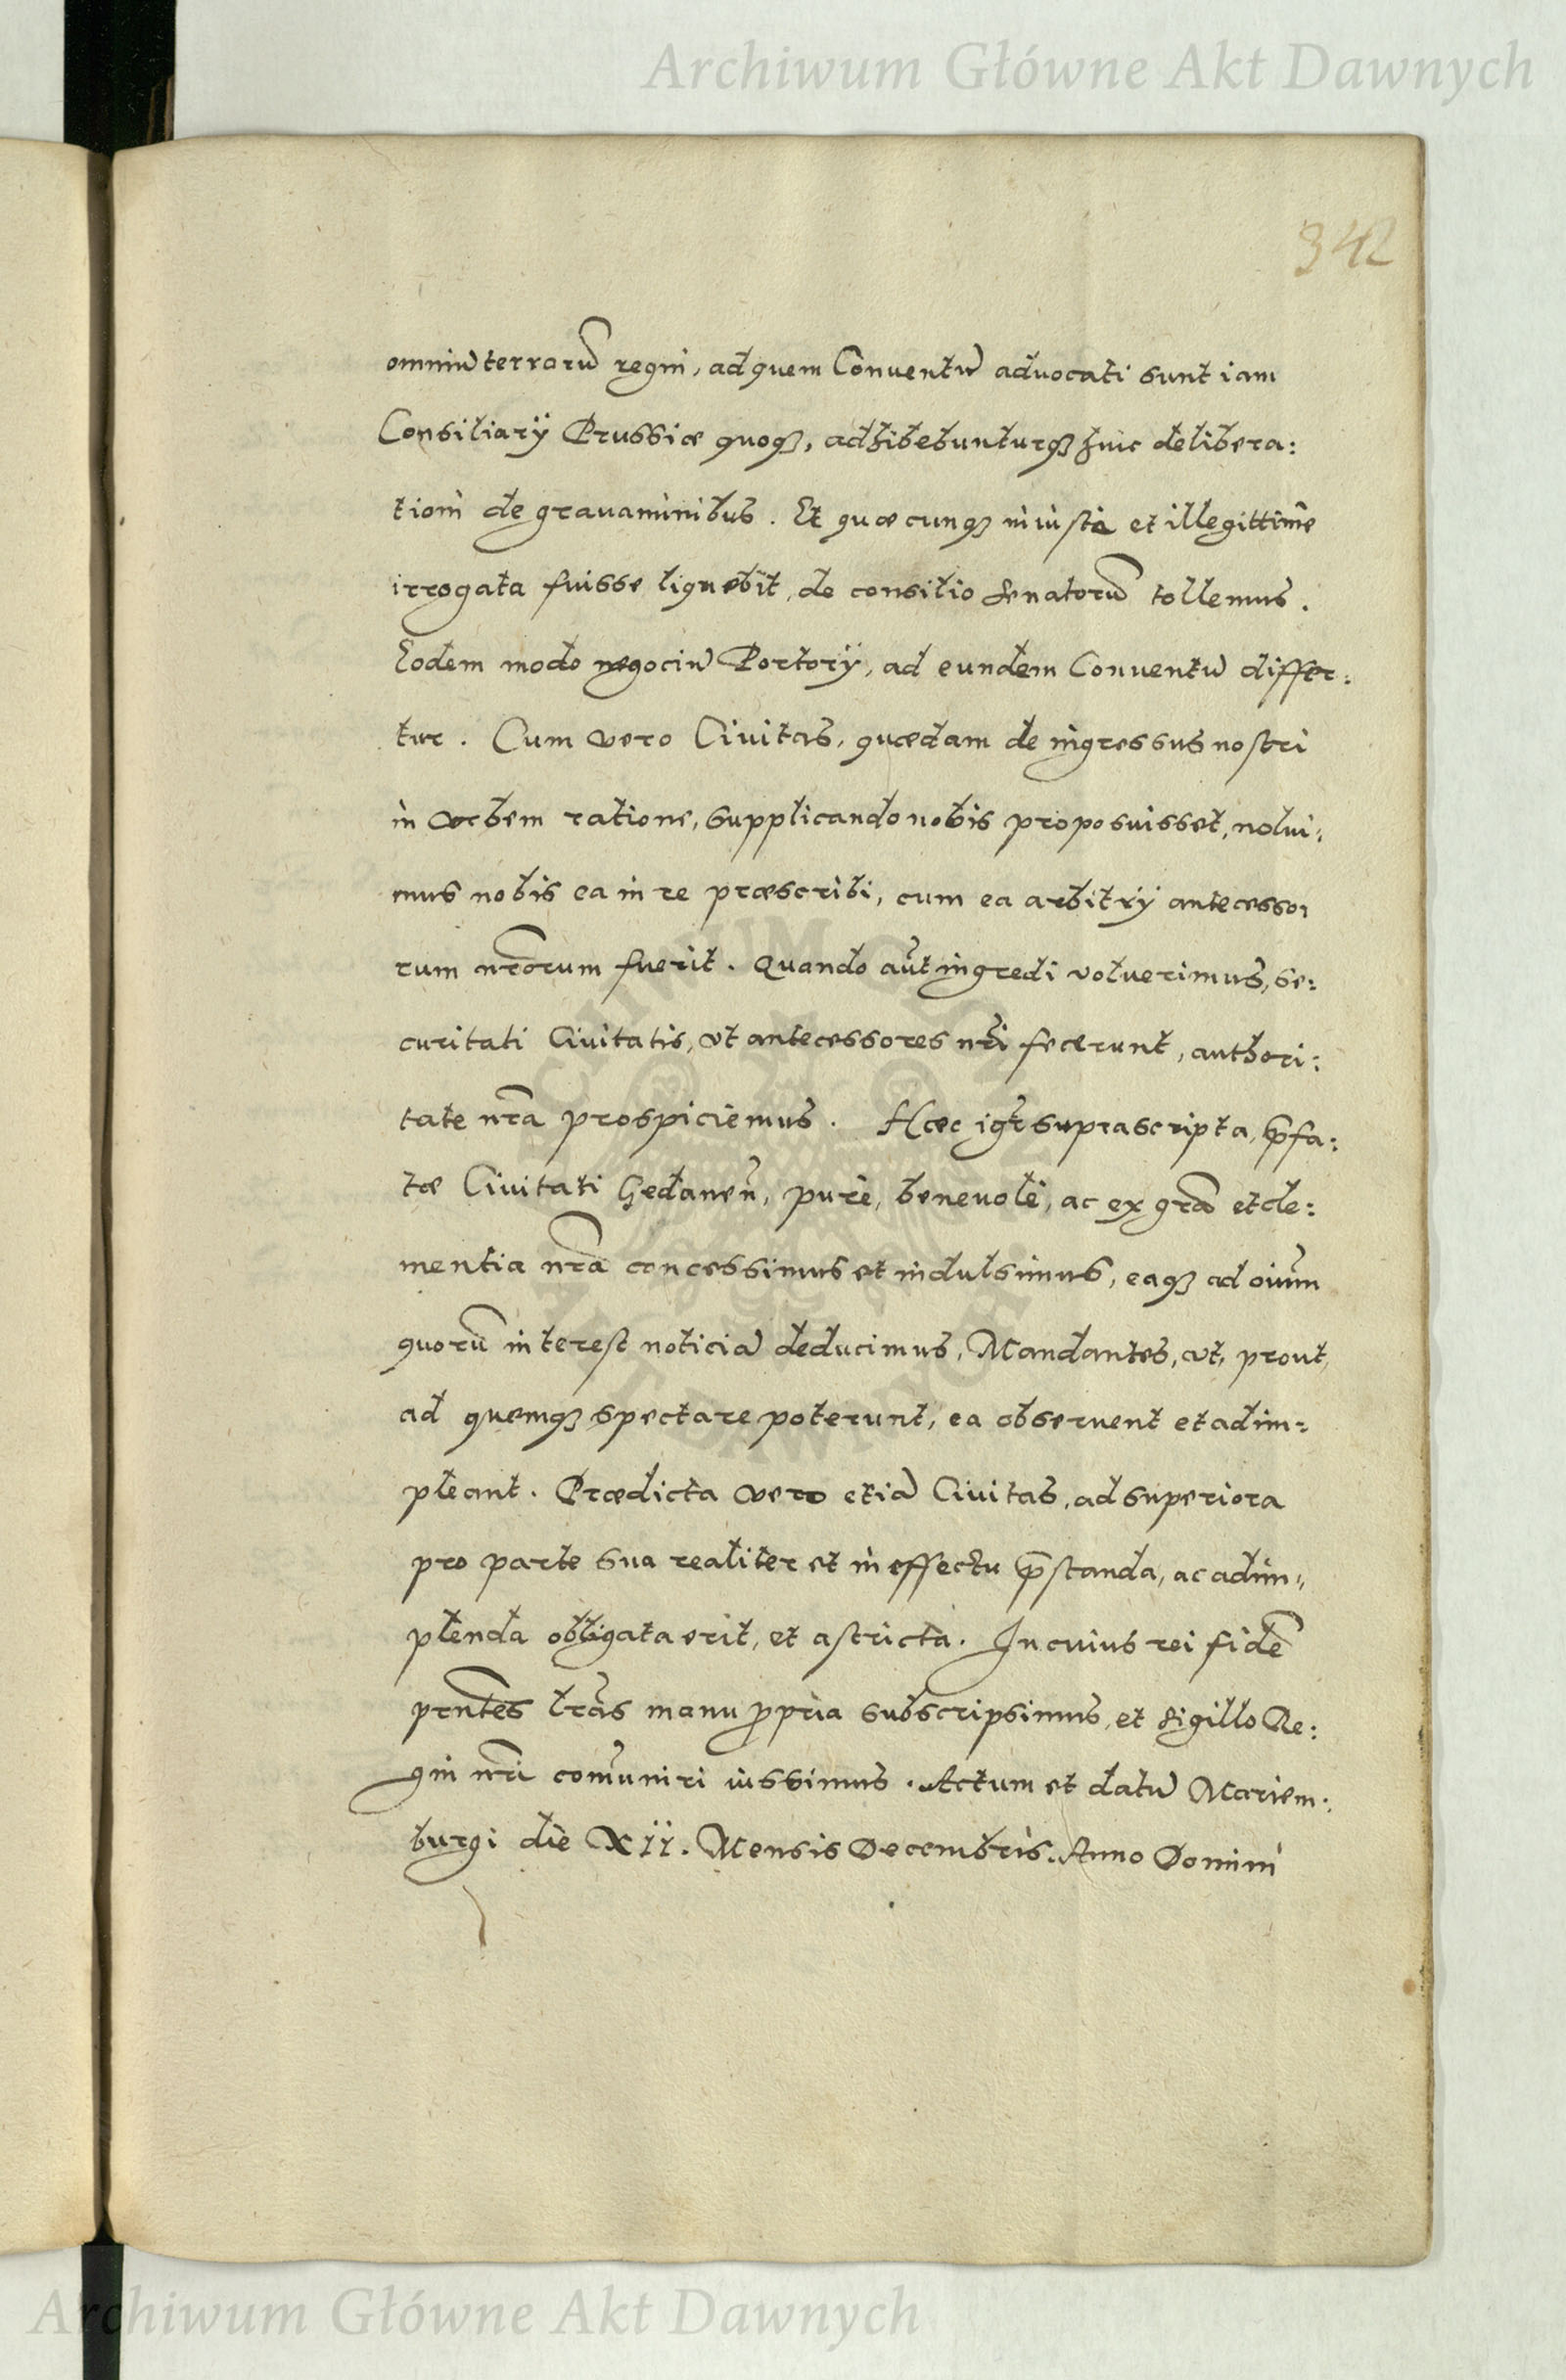 Archiwum Główne Akt Dawnych
342
omniũ terrarũ regni, ad quem Conventũ advocati sunt iam
Consiliarÿ Prussiæ quoqꝫ, adhibebunturqꝫ huic delibera:
tioni de gravaminibus. Et quæcunqꝫ iniustè et illegittimè
irrogata fuisse liquebit, de consilio Senatorũ tollemus.
Eodem modo negociũ Portorÿ, ad eundem Conventũ differ:
tur. Cum vero Civitas, quædam de ingressus nostri
in vrbem ratione, supplicando nobis proposuisset, nolui:
mus nobis ea in re præscribi, cum ea arbitrÿ antecesso:
rum nr̃orum fuerit. Quando aũt ingredi voluerimus, se:
curitati Civitatis, vt antecessores nr̃i fecerunt, authori:
tate nr̃a prospiciemus. Hæc igr̃ suprascripta, p̃fa:
tæ Civitati Gedaneñ, purè, benevolè, ac ex gr̃a et cle:
mentia nr̃a concessimus et indulsimus, eaqꝫ ad oĩum
quorũ interest noticiã deducimus, Mandantes, vt, prout,
ad quemqꝫ spectare poterunt, ea observent et adim:
pleant. Prædicta vero etiã Civitas, ad superiora
pro parte sua realiter et in effectu p̃standa, ac adim:
plenda obligata erit, et astricta. In cuius rei fidẽ
pñtes lr̃as manu ꝓpria subscripsimus, et sigillo Re:
gni nr̃i com̃uniri iussimus. Actum et datũ Mariem:
burgi die XII. Mensis Decembris. Anno Domini
Archiwum Główne Akt Dawnych